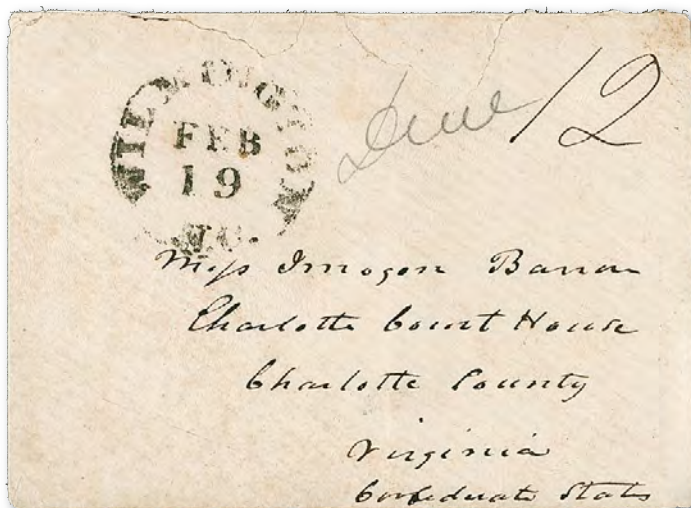 WILMINGTON
FEB
19
N.C.
Due 12
Miss Imogen Barron
Charlotte Court House
Charlotte County
Virginia
Confederate States